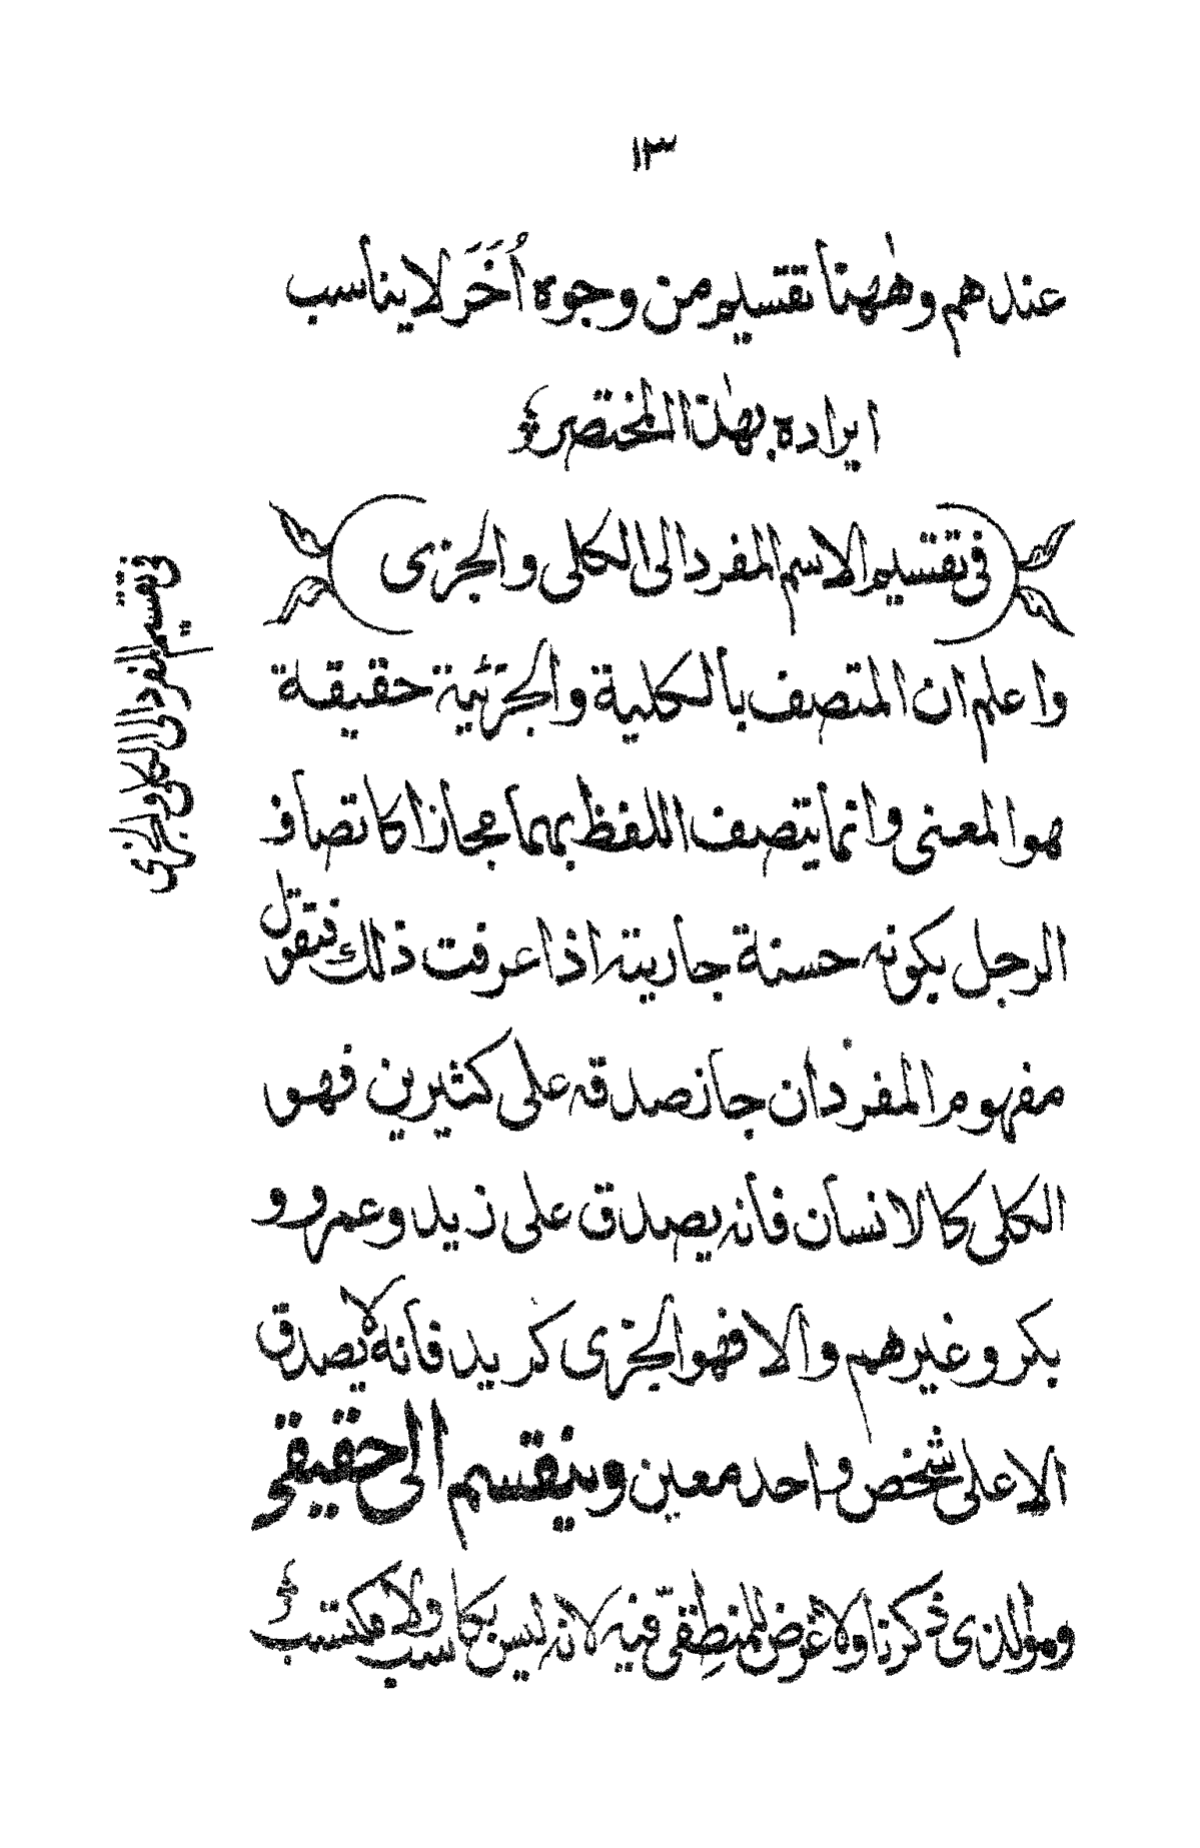 ١٣
عندهم وهٰهنا تقسيم من وجوه اُخَرَ لا يناسب
ايراده بهٰذا المختصر
في تقسيم الاسم المفرد الى الكلى والجزى
في تقسيم المفرد الى الكلى والجزى
واعلم ان المتصف بالكلية والجزئية حقيقة
هو المعنى وانما يتصف اللفظ بهما مجازا كاتصاف
الرجل بكونه حسنة جاريته اذا عرفت ذلك فنقول
مفهوم المفرد ان جاز صدقه على كثيرين فهو
الكلى كالانسان فانه يصدق على زيد وعمرو و
بكر وغيرهم والا فهو الجزى كزيد فانه لا يصدق
الا على شخص واحد معين وينقسم الى حقيقى
وهو الذى ذكرنا ولا غرض للمنطِقىّ فيه لانه ليس بكاسب ولا مكتسب